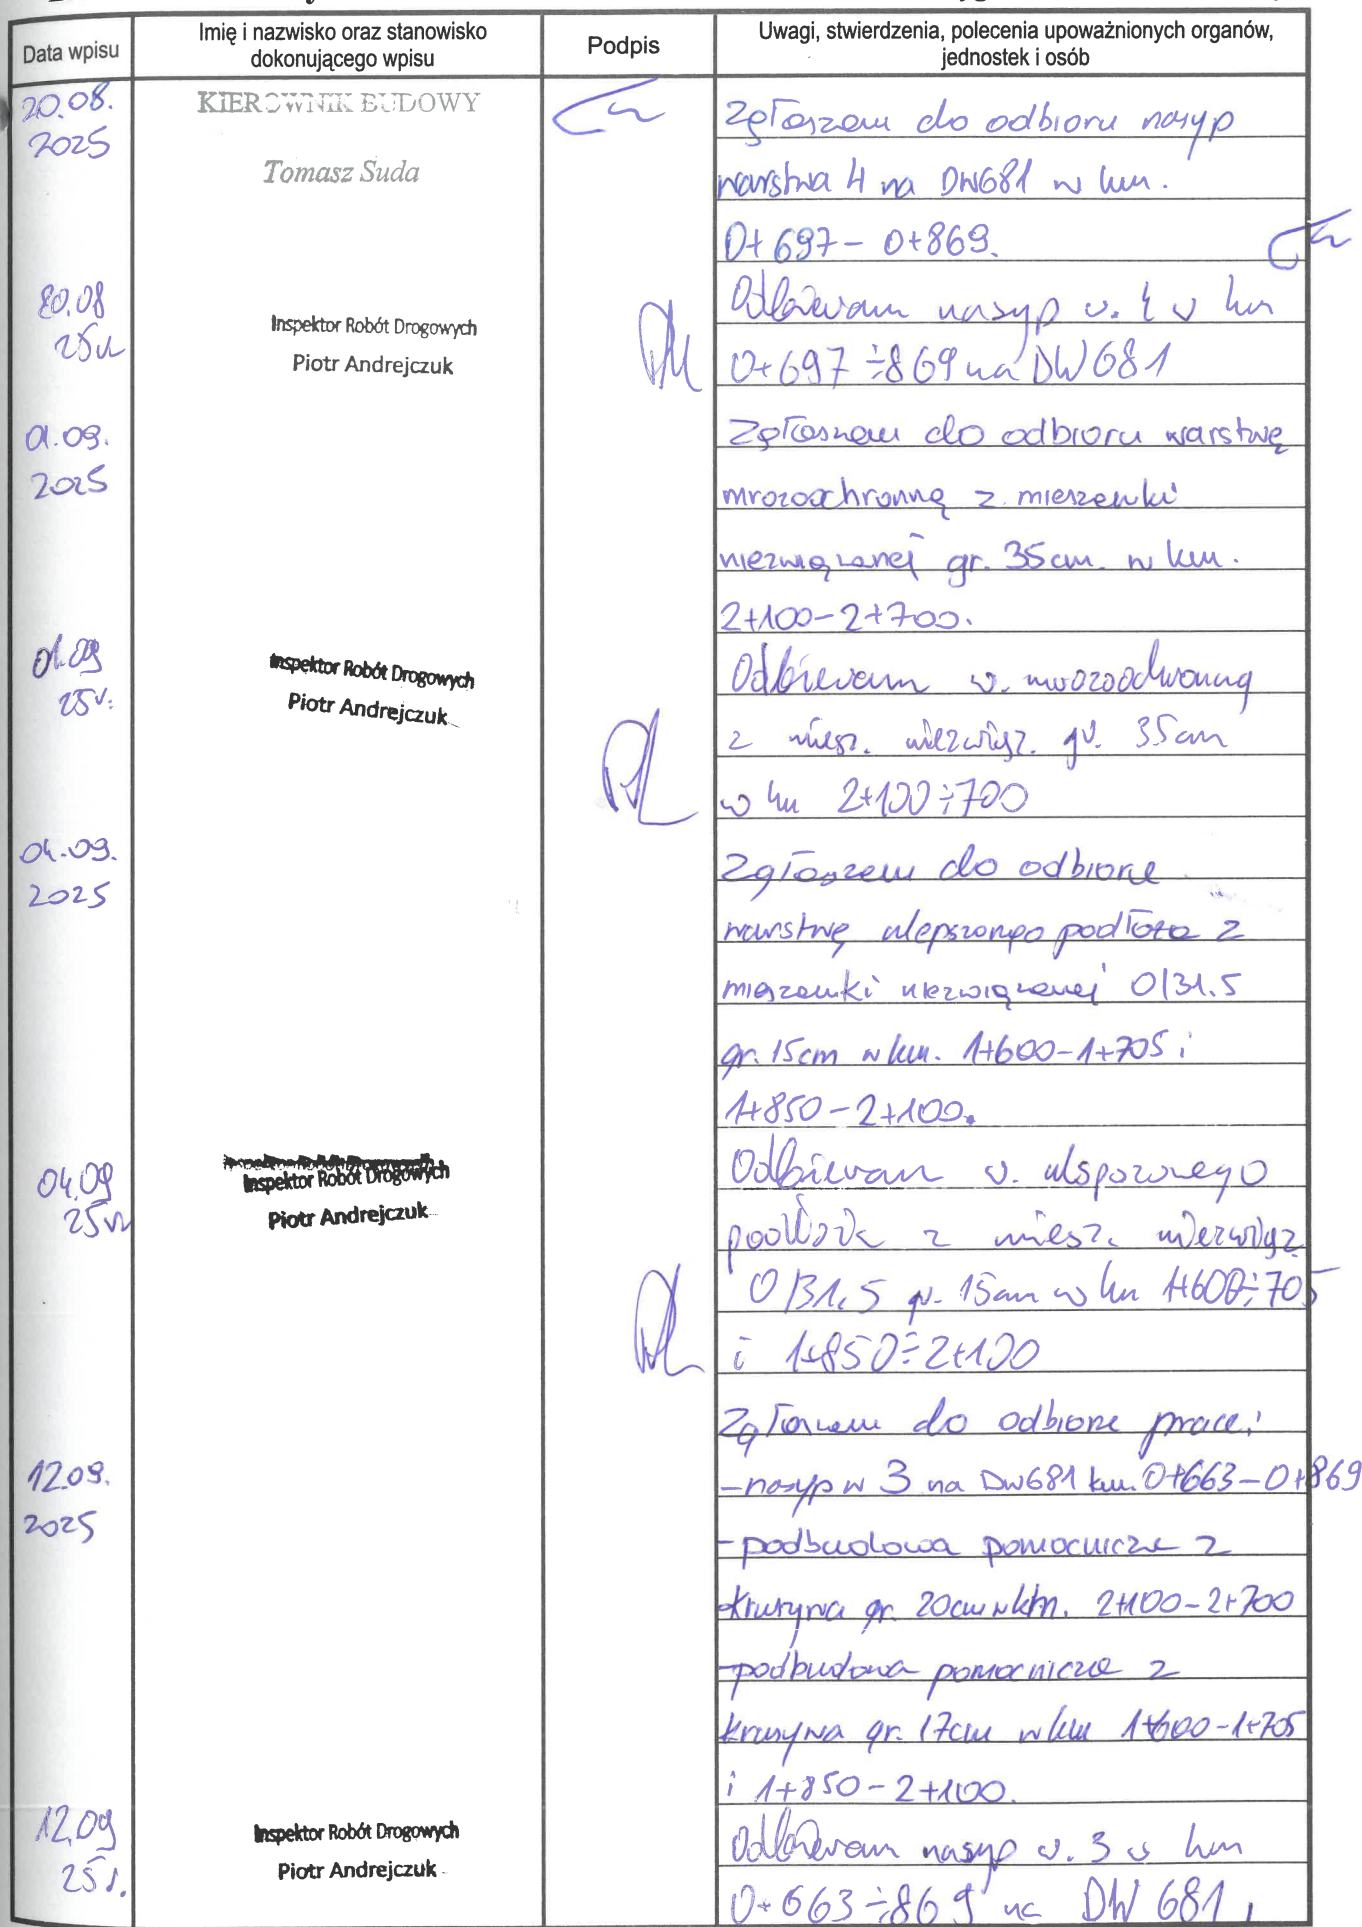 Data wpisu
Imię i nazwisko oraz stanowisko
dokonującego wpisu
Podpis
Uwagi, stwierdzenia, polecenia upoważnionych organów,
jednostek i osób
20.08.
2025
KIEROWNIK BUDOWY
Tomasz Suda
Zgłaszam do odbioru nasyp
warstwa 4 na DW681 w km.
0+697 - 0+869.
20.08
25r
Inspektor Robót Drogowych
Piotr Andrejczuk
Odbieram nasyp w. 4 w km
0+697 ÷ 869 na DW 681
01.09.
2025
Zgłaszam do odbioru warstwę
mrozoochronną z mieszanki
niezwiązanej gr. 35cm. w km.
2+100-2+700.
01.09
25r.
Inspektor Robót Drogowych
Piotr Andrejczuk
Odbieram w. mrozoochronną
z miesz. niezwiąz. gr. 35cm
w km 2+100÷700
04.09.
2025
Zgłaszam do odbioru
warstwę ulepszonego podłoża z
mieszanki niezwiązanej 0/31.5
gr. 15cm w km. 1+600-1+705 i
1+850-2+100.
04.09
25r
Inspektor Robót Drogowych
Piotr Andrejczuk
Odbieram w. ulepszonego
podłoża z miesz. niezwiąz
0/31,5 gr. 15cm w km 1+600÷705
i 1+850÷2+100
Zgłaszam do odbioru prace:
12.09.
2025
-nasyp w 3 na DW681 km. 0+663-0+869
-podbudowa pomocnicza z
kruszywa gr. 20cm w km. 2+100-2+700
-podbudowa pomocnicza z
kruszywa gr. 17cm w km 1+600-1+705
i 1+850-2+100.
12.09
25r.
Inspektor Robót Drogowych
Piotr Andrejczuk
Odbieram nasyp w. 3 w km
0+663÷869 na DW 681,